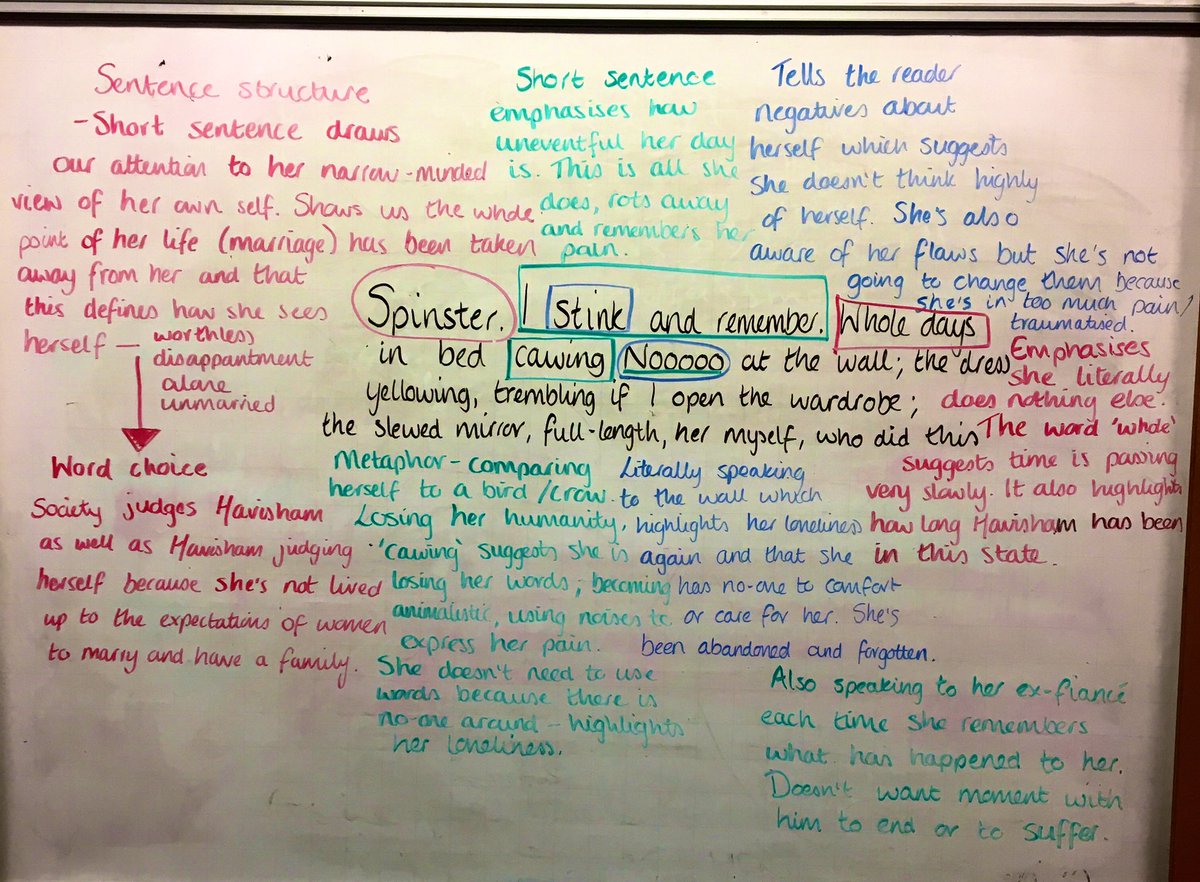 Sentence structure
-Short sentence draws
our attention to her narrow-minded
view of her own self. Shows us the whole
point of her life (marriage) has been taken
away from her and that
this defines how she sees
herself — worthless
disappointment
alone
unmarried
Word choice
Society judges Havisham
as well as Havisham judging
herself because she's not lived
up to the expectations of women
to marry and have a family.
Short sentence
emphasises how
uneventful her day
is. This is all she
does, rots away
and remembers her
pain.
Tells the reader
negatives about
herself which suggests
she doesn't think highly
of herself. She's also
aware of her flaws but she's not
going to change them because
she's in too much pain/
traumatised.
Spinster. I Stink and remember. Whole days
in bed cawing Nooooo at the wall; the dress
yellowing, trembling if I open the wardrobe;
the slewed mirror, full-length, her myself, who did this
Emphasises
she literally
does nothing else.
The word 'whole'
suggests time is passing
very slowly. It also highlights
how long Havisham has been
in this state.
Metaphor - comparing
herself to a bird/crow.
Losing her humanity,
'cawing' suggests she is
losing her words; becoming
animalistic, using noises to
express her pain.
She doesn't need to use
words because there is
no-one around - highlights
her loneliness.
Literally speaking
to the wall which
highlights her loneliness
again and that she
has no-one to comfort
or care for her. She's
been abandoned and forgotten.
Also speaking to her ex-fiancé
each time she remembers
what has happened to her.
Doesn't want moment with
him to end or to suffer.